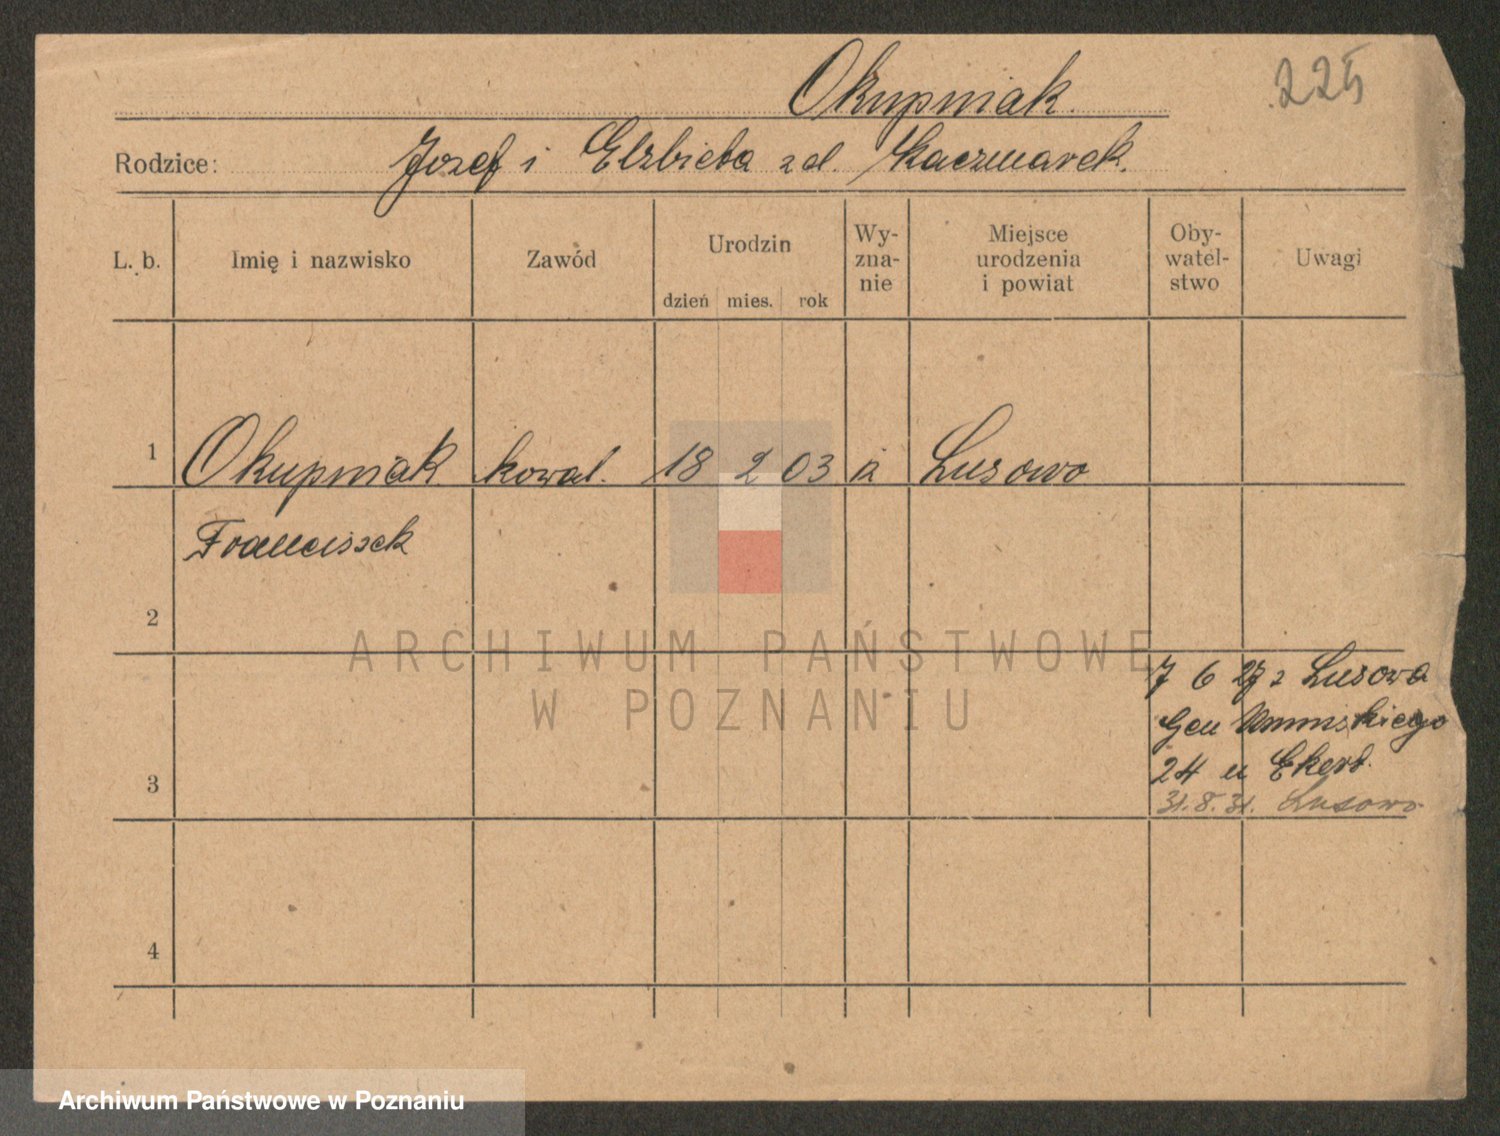 Okupniak.
225
Rodzice: Jozef i Elzbieta z d. Kaczmarek.
L. b. Imię i nazwisko Zawód Urodzin Wy- Miejsce Oby- Uwagi
zna- urodzenia watel-
nie i powiat stwo
dzień mies. rok
1 Okupniak kowal. 18 2 03 k Lusowo
Franciszek
2
ARCHIWUM PAŃSTWOWE
W POZNANIU
7 6 27 z Lusowa
Gen Umińskiego
24 u Ekert.
3
31.8.31. Lusowo
4
Archiwum Państwowe w Poznaniu